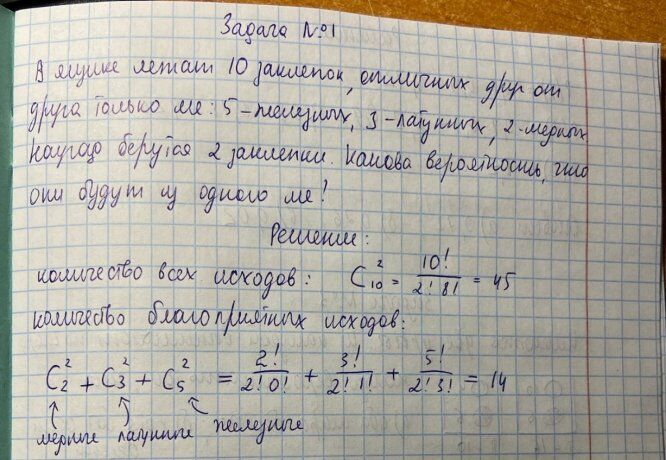 Задача №1
В ящике лежат 10 заклепок, отличных друг от
друга только ме: 5 - железных, 3 - латунных, 2 - медных
Наугад берутся 2 заклепки. Какова вероятность, что
они будут из одного ме!
Решение:
количество всех исходов: C₁₀² = 10! / 2! 8! = 45
количество благоприятных исходов:
C₂² + C₃² + C₅² = 2! / 2! 0! + 3! / 2! 1! + 5! / 2! 3! = 14
медные латунные железные